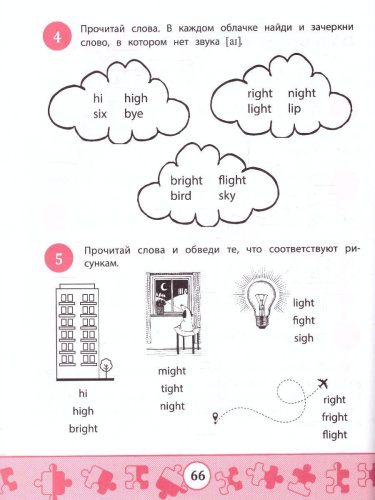 4
Прочитай слова. В каждом облачке найди и зачеркни
слово, в котором нет звука [aɪ].
hi high
six bye
right night
light lip
bright flight
bird sky
5
Прочитай слова и обведи те, что соответствуют ри-
сункам.
hi
high
bright
might
tight
night
light
fight
sigh
right
fright
flight
66